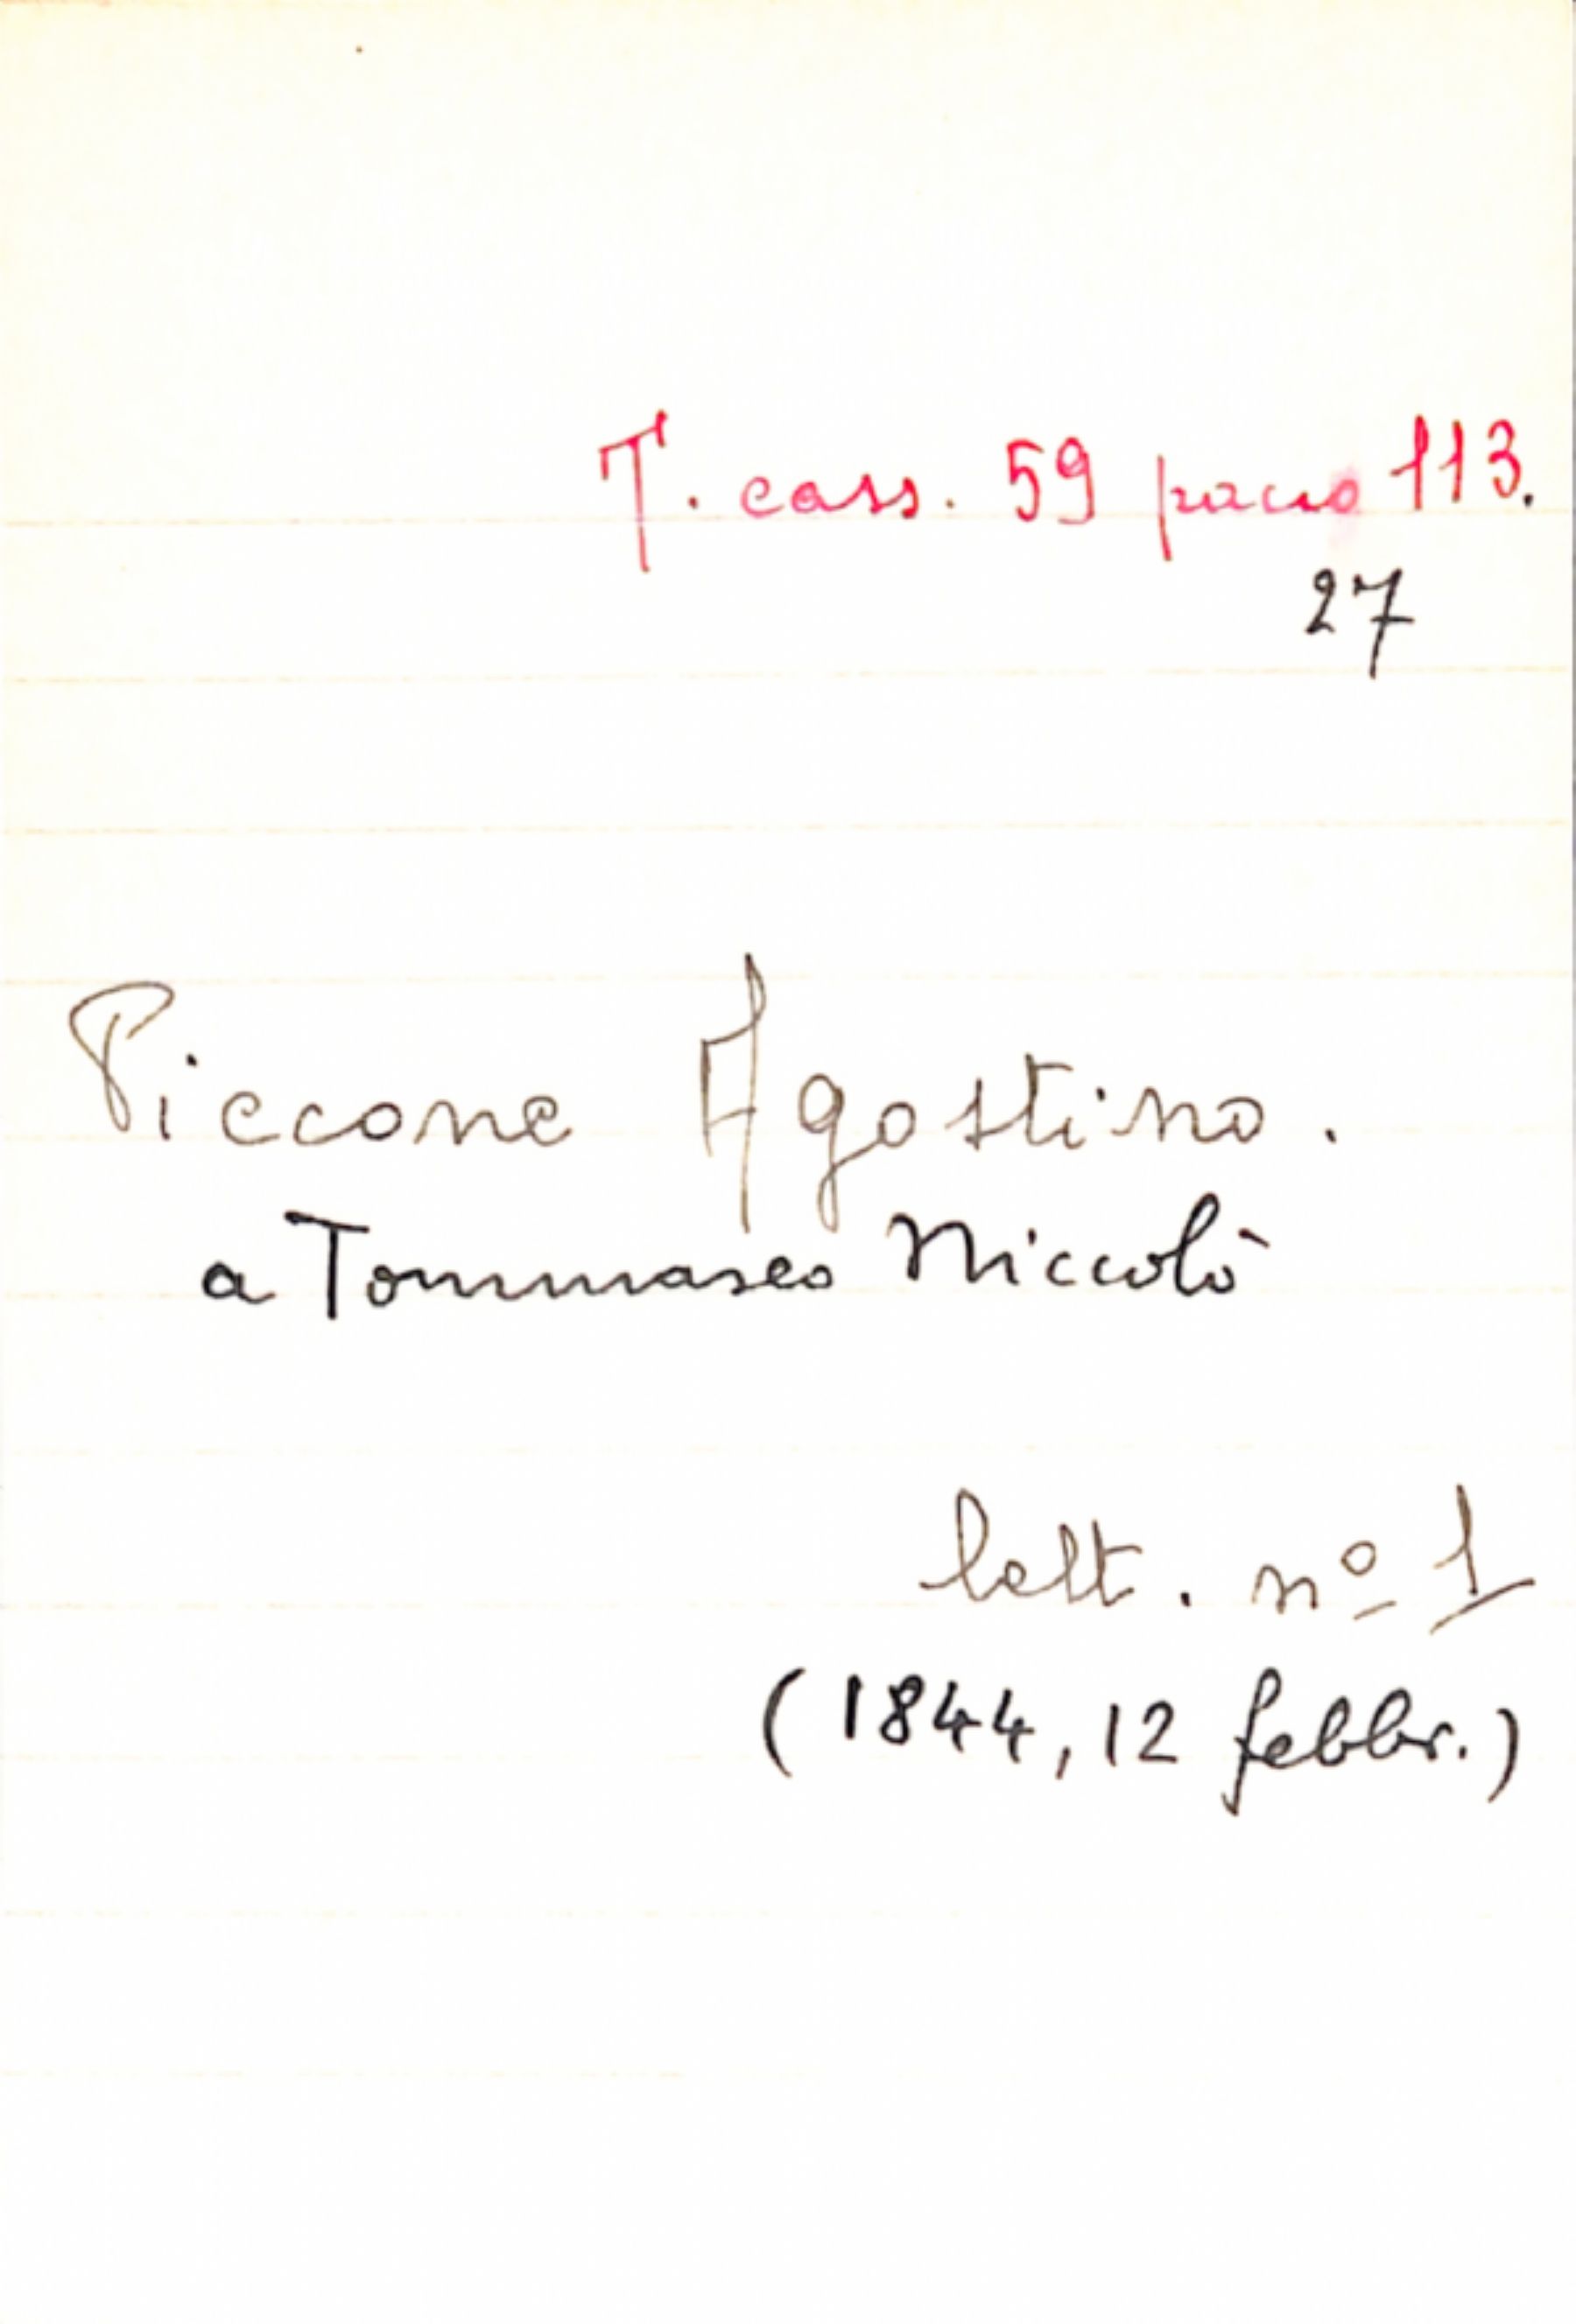 T. cass. 59 pacco 113.
27
Piccone Agostino.
a Tommaseo Niccolò
lett. nº 1
(1844, 12 febbr.)